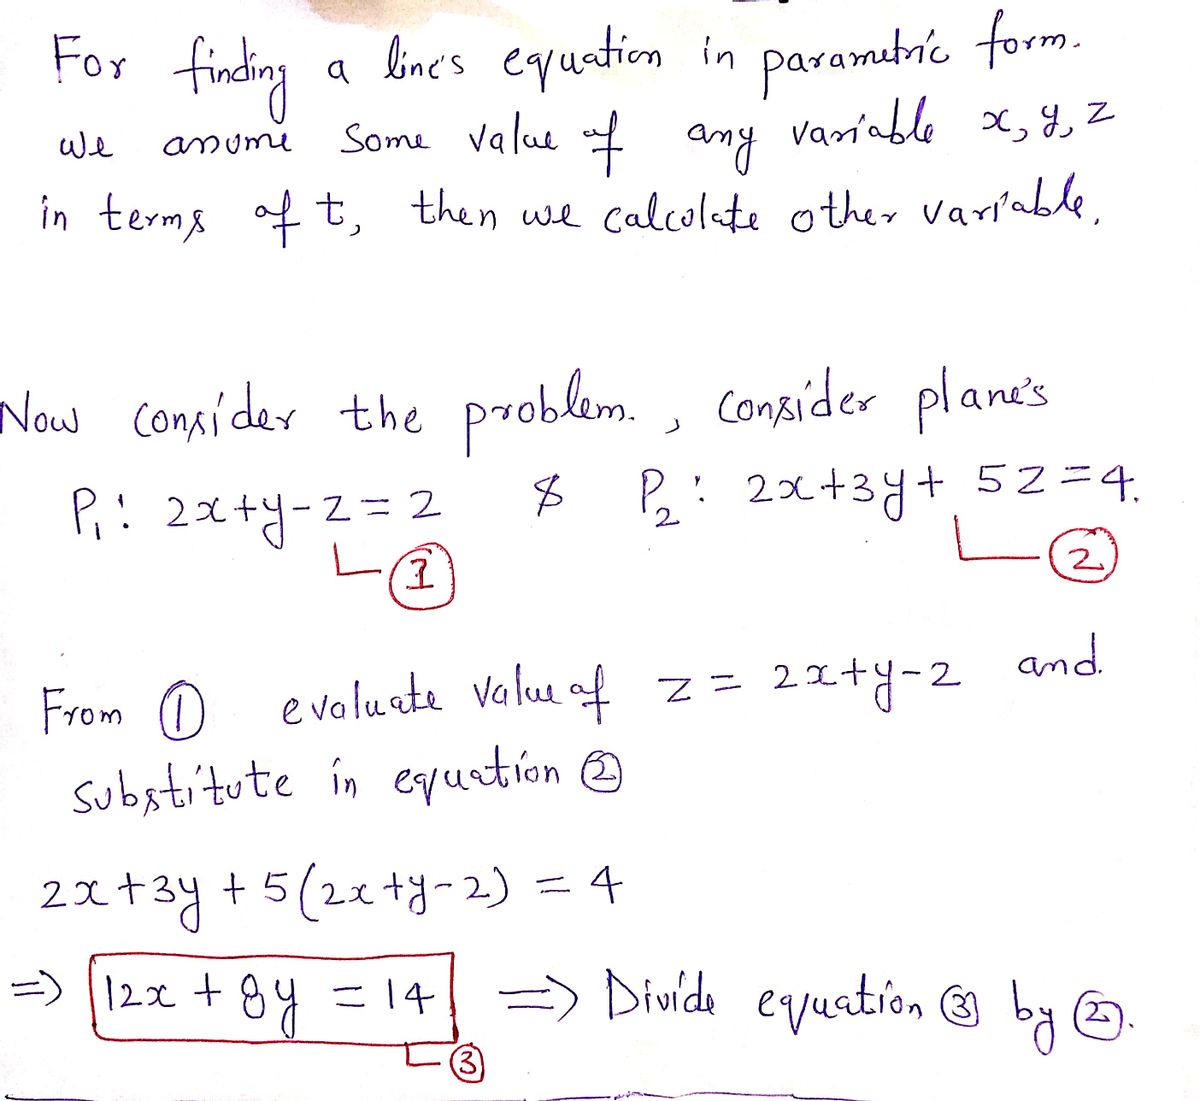 For finding a line's equation in parametric form.
we assume some value of any variable x, y, z
in terms of t, then we calculate other variable.
Now consider the problem. , consider plane's
P₁: 2x+y-z=2 & P₂: 2x+3y+5z=4.
①
②
From ① evaluate value of z = 2x+y-2 and.
substitute in equation ②
2x+3y+5(2x+y-2) = 4
=> 12x + 8y = 14 => Divide equation ③ by ②.
③